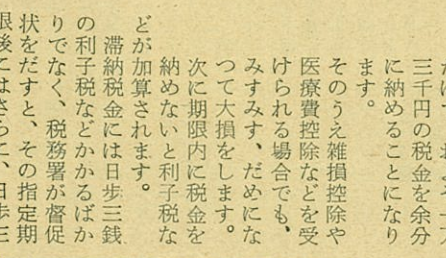 三千円の税金を余分
に納めることになり
ます。
そのうえ雑損控除や
医療費控除などを受
けられる場合でも、
みすみす、だめにな
つて大損をします。
次に期限内に税金を
納めないと利子税な
どが加算されます。
滞納税金には日歩三銭
の利子税などかかるばか
りでなく、税務署が督促
状をだすと、その指定期
限後にはさらに、日歩三